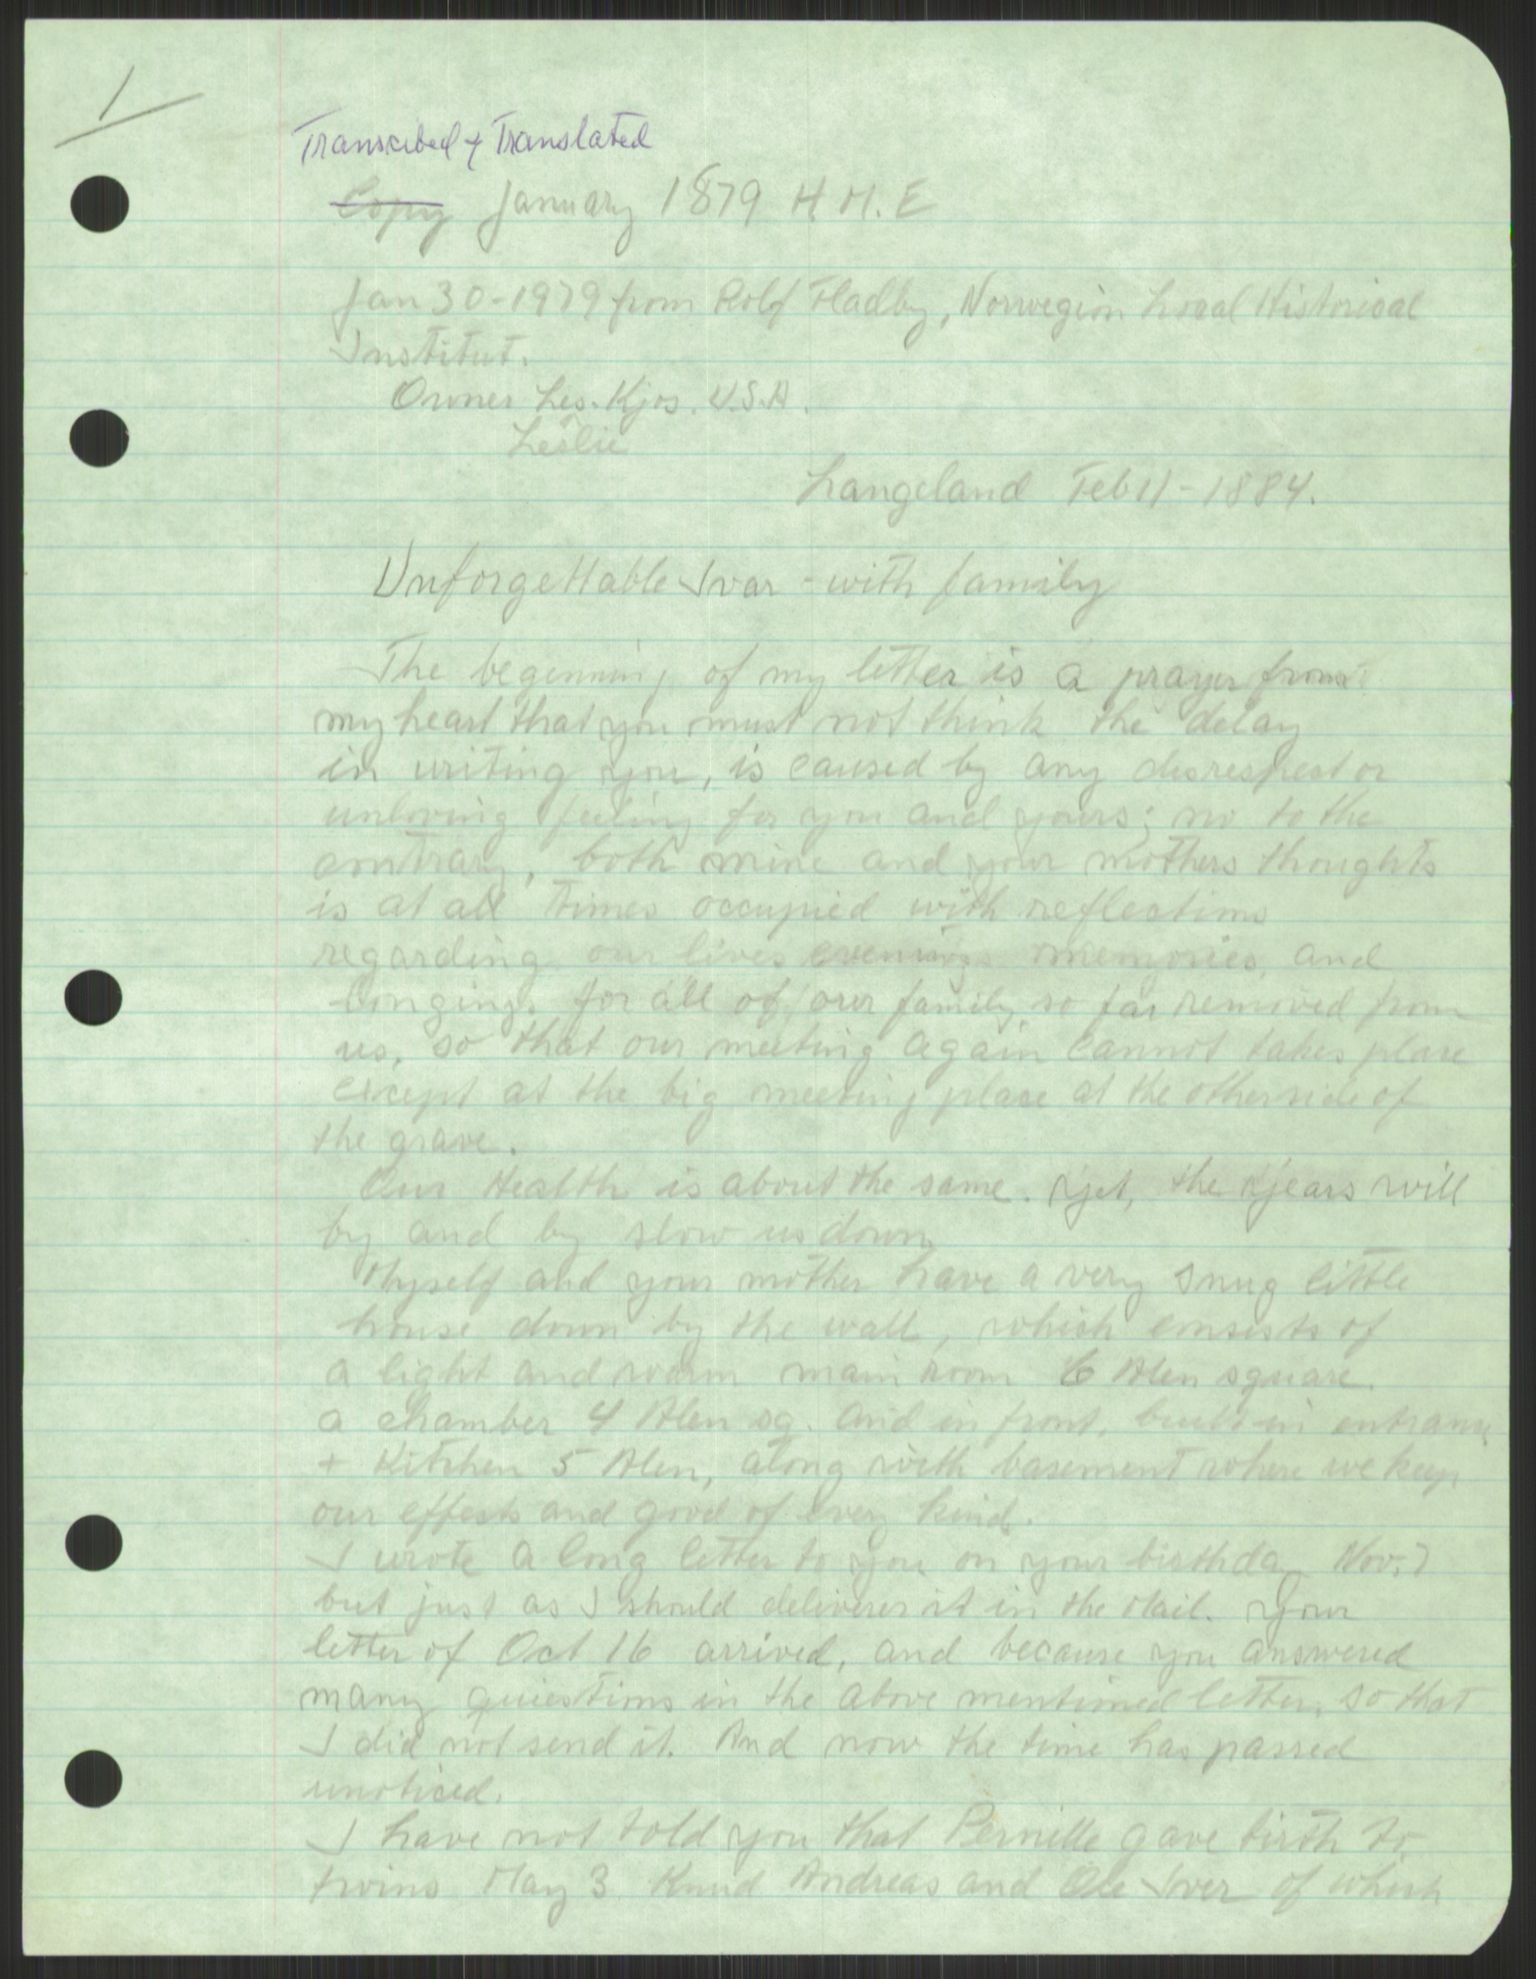 1
Transcribed & Translated
Copy January 1879 H.M.E
Jan 30-1979 from Rolf Fladby, Norwegion Local Historical
Institut.
Owner Les. Kjos. U.S.A.
Leslie
Langeland Feb 11-1884.
Unforgettable Ivar - with family
The beginning of my letter is a prayer from
my heart that you must not think the delay
in writing you, is caused by any disrespect or
unloving feeling for you and yours; no to the
contrary, both mine and your mothers thoughts
is at all times occupied with reflections
regarding our lives evenings memories, and
longings for all of our family so far removed from
us, so that our meeting again cannot takes place
except at the big meeting place at the otherside of
the grave.
Our Health is about the same. Yet, the years will
by and by slow us down.
Myself and your mother have a very snug little
house down by the wall, which consists of
a light and warm main room 6 Alen square.
a chamber 4 Alen sq. and in front, built-in entrance
+ Kitchen 5 Alen, along with basement where we keep
our effects and good of every kind.
I wrote a long letter to you on your birthday Nov. 7
but just as I should deliverer it in the Mail. Your
letter of Oct 16 arrived, and because you answered
many quiestions in the above mentioned letter, so that
I did not send it. And now the time has passed
unoticed.
I have not told you that Pernille gave birth to
twins May 3. Knud Andreas and Ole Iver of which